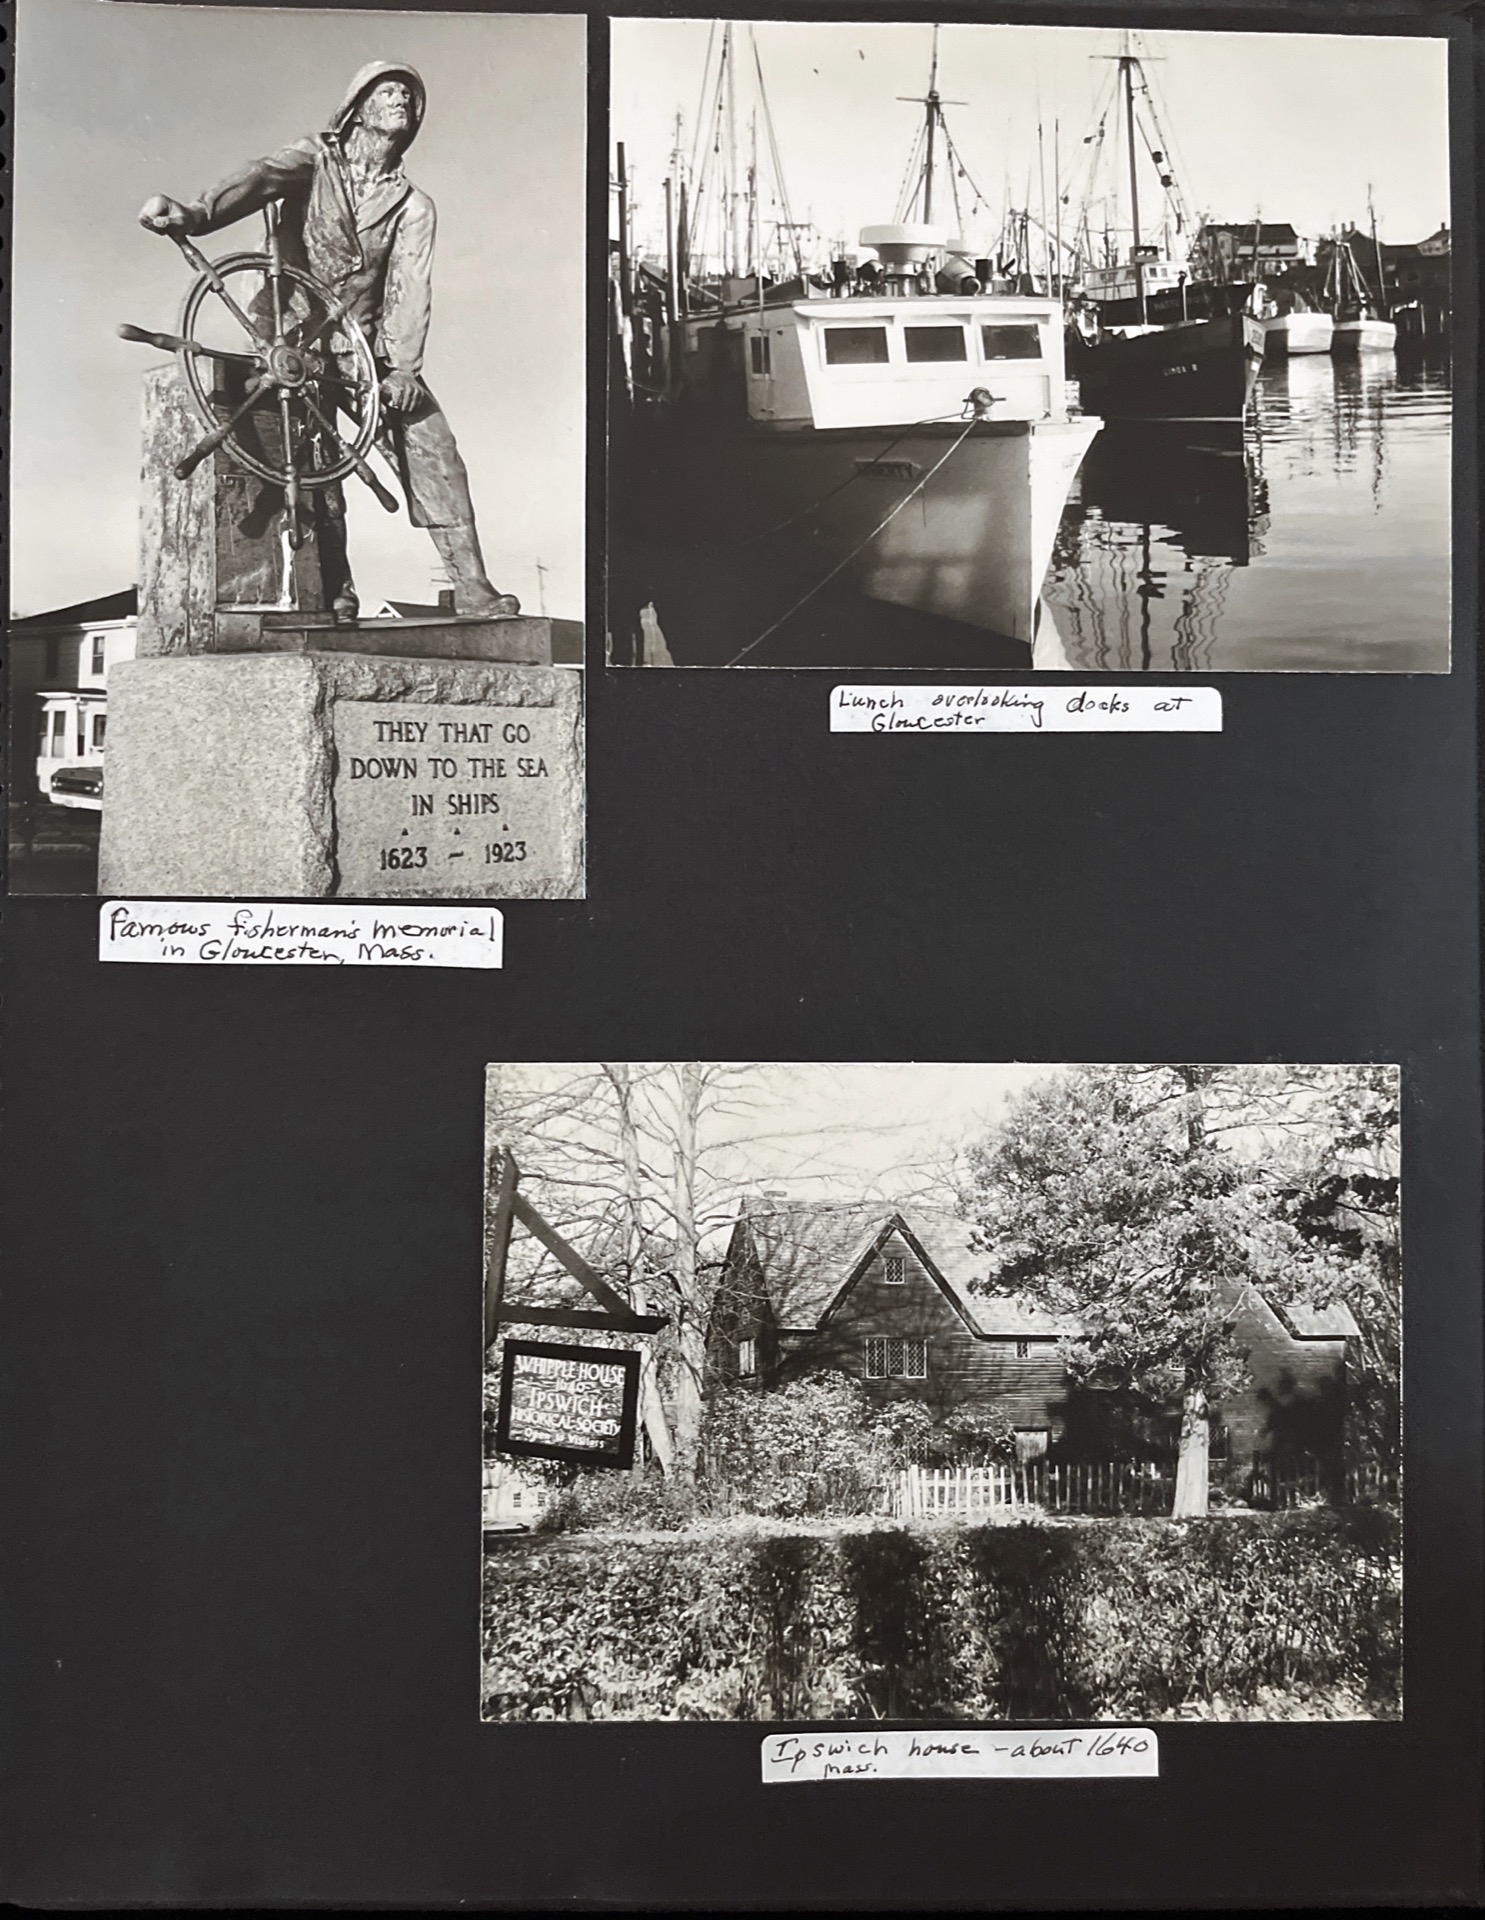 THEY THAT GO
DOWN TO THE SEA
IN SHIPS
1623 - 1923
Famous fisherman's memorial
in Gloucester, Mass.
LINDA B
Lunch overlooking docks at
Gloucester
WHIPPLE·HOUSE
1640
IPSWICH
HISTORICAL·SOCIETY
Open to Visitors
Ipswich house - about 1640
Mass.